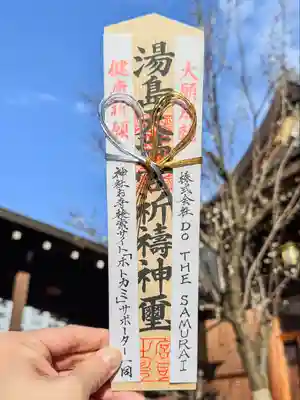 大願成就
株式会社 DO THE SAMURAI
湯島天満宮祈禱神璽
健康祈願
神社お寺検索サイト「ホトカミ」サポーター一同